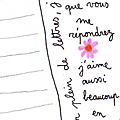 que vous
me
répondrez
j'aime
aussi
beaucoup
en
lettres, j
de
plein